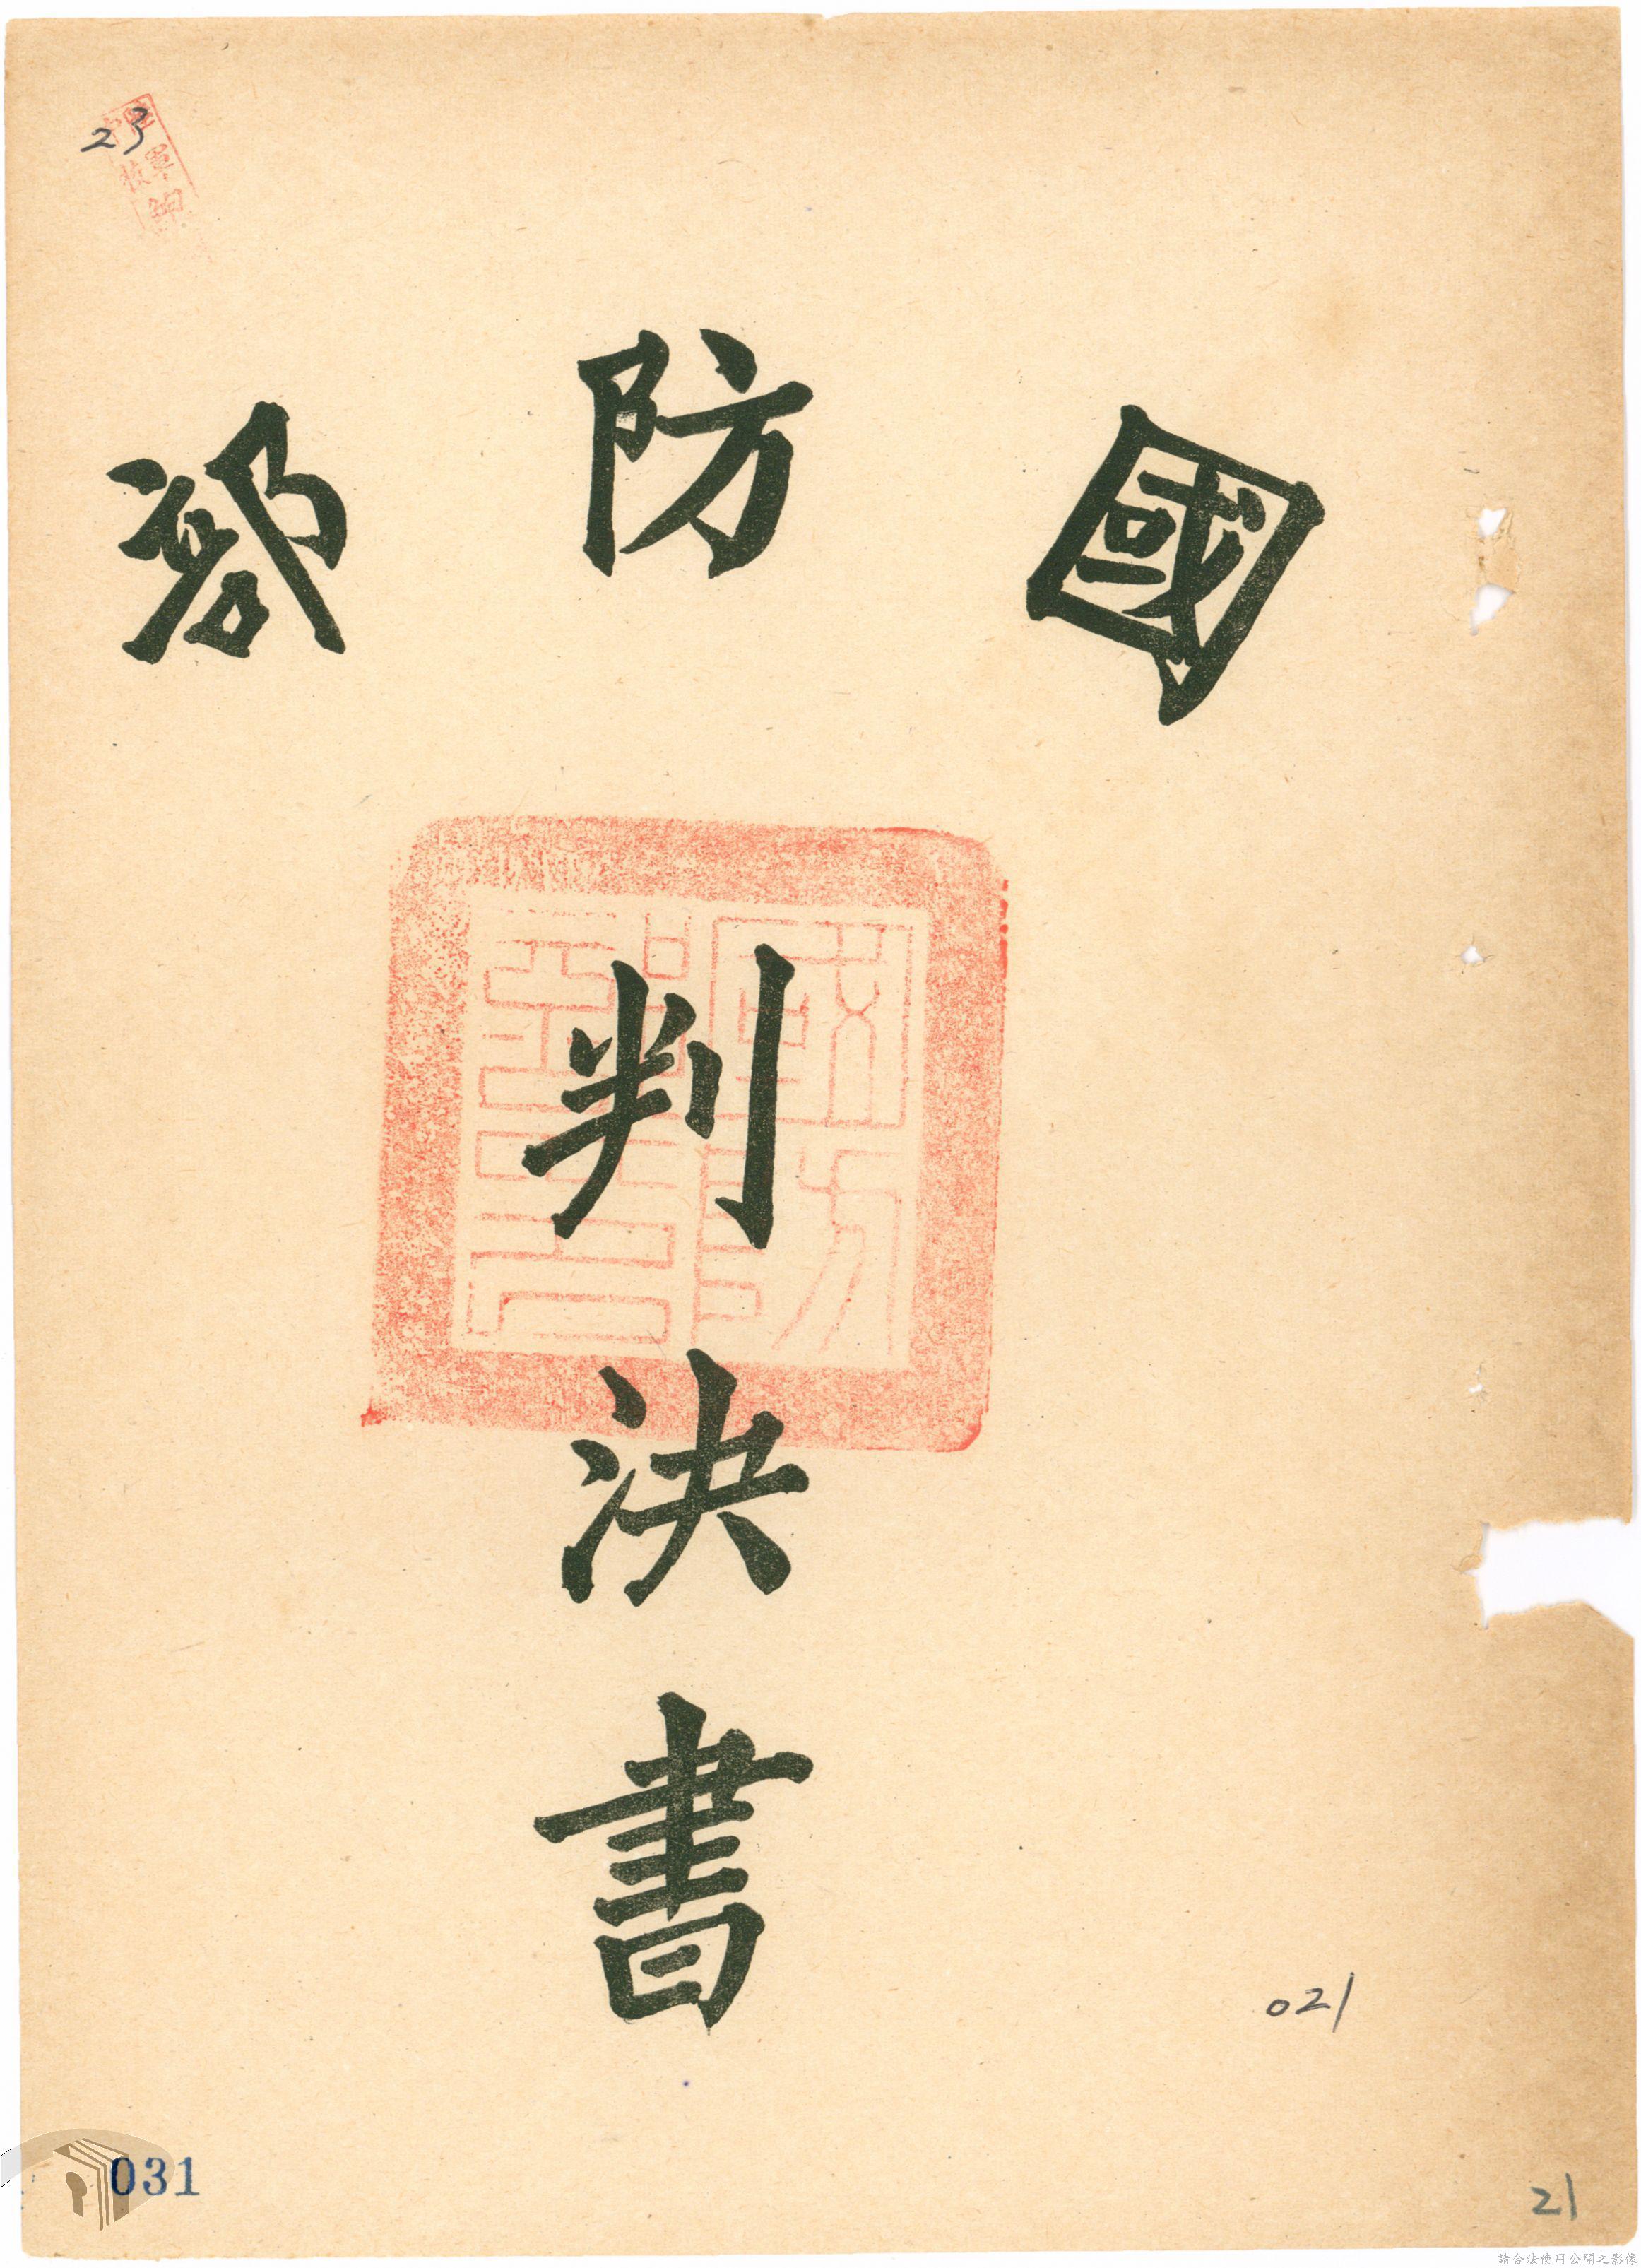 23
國防部
國防部印
判決書
021
031
21
請合法使用公開之影像